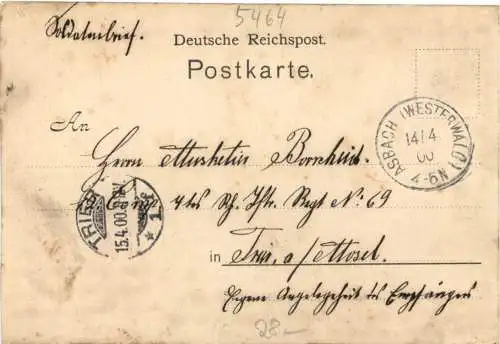 5464
Soldatenbrief.
Deutsche Reichspost.
Postkarte.
ASBACH (WESTERWALD)
14/4
00
4-5N
An
Herrn Musketier Bornheid.
Comp 7tes Rh. Inftr. Regt No: 69
TRIER
15.4.00.
* 1
in Trier, a/Mosel.
Eigene Angelegenheit des Empfängers
28-